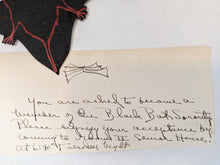 You are asked to become a
member of the Black Bat Sorority
Please signify your acceptance by
coming to Room 11 Senior House.
at 6:40 Tuesday night